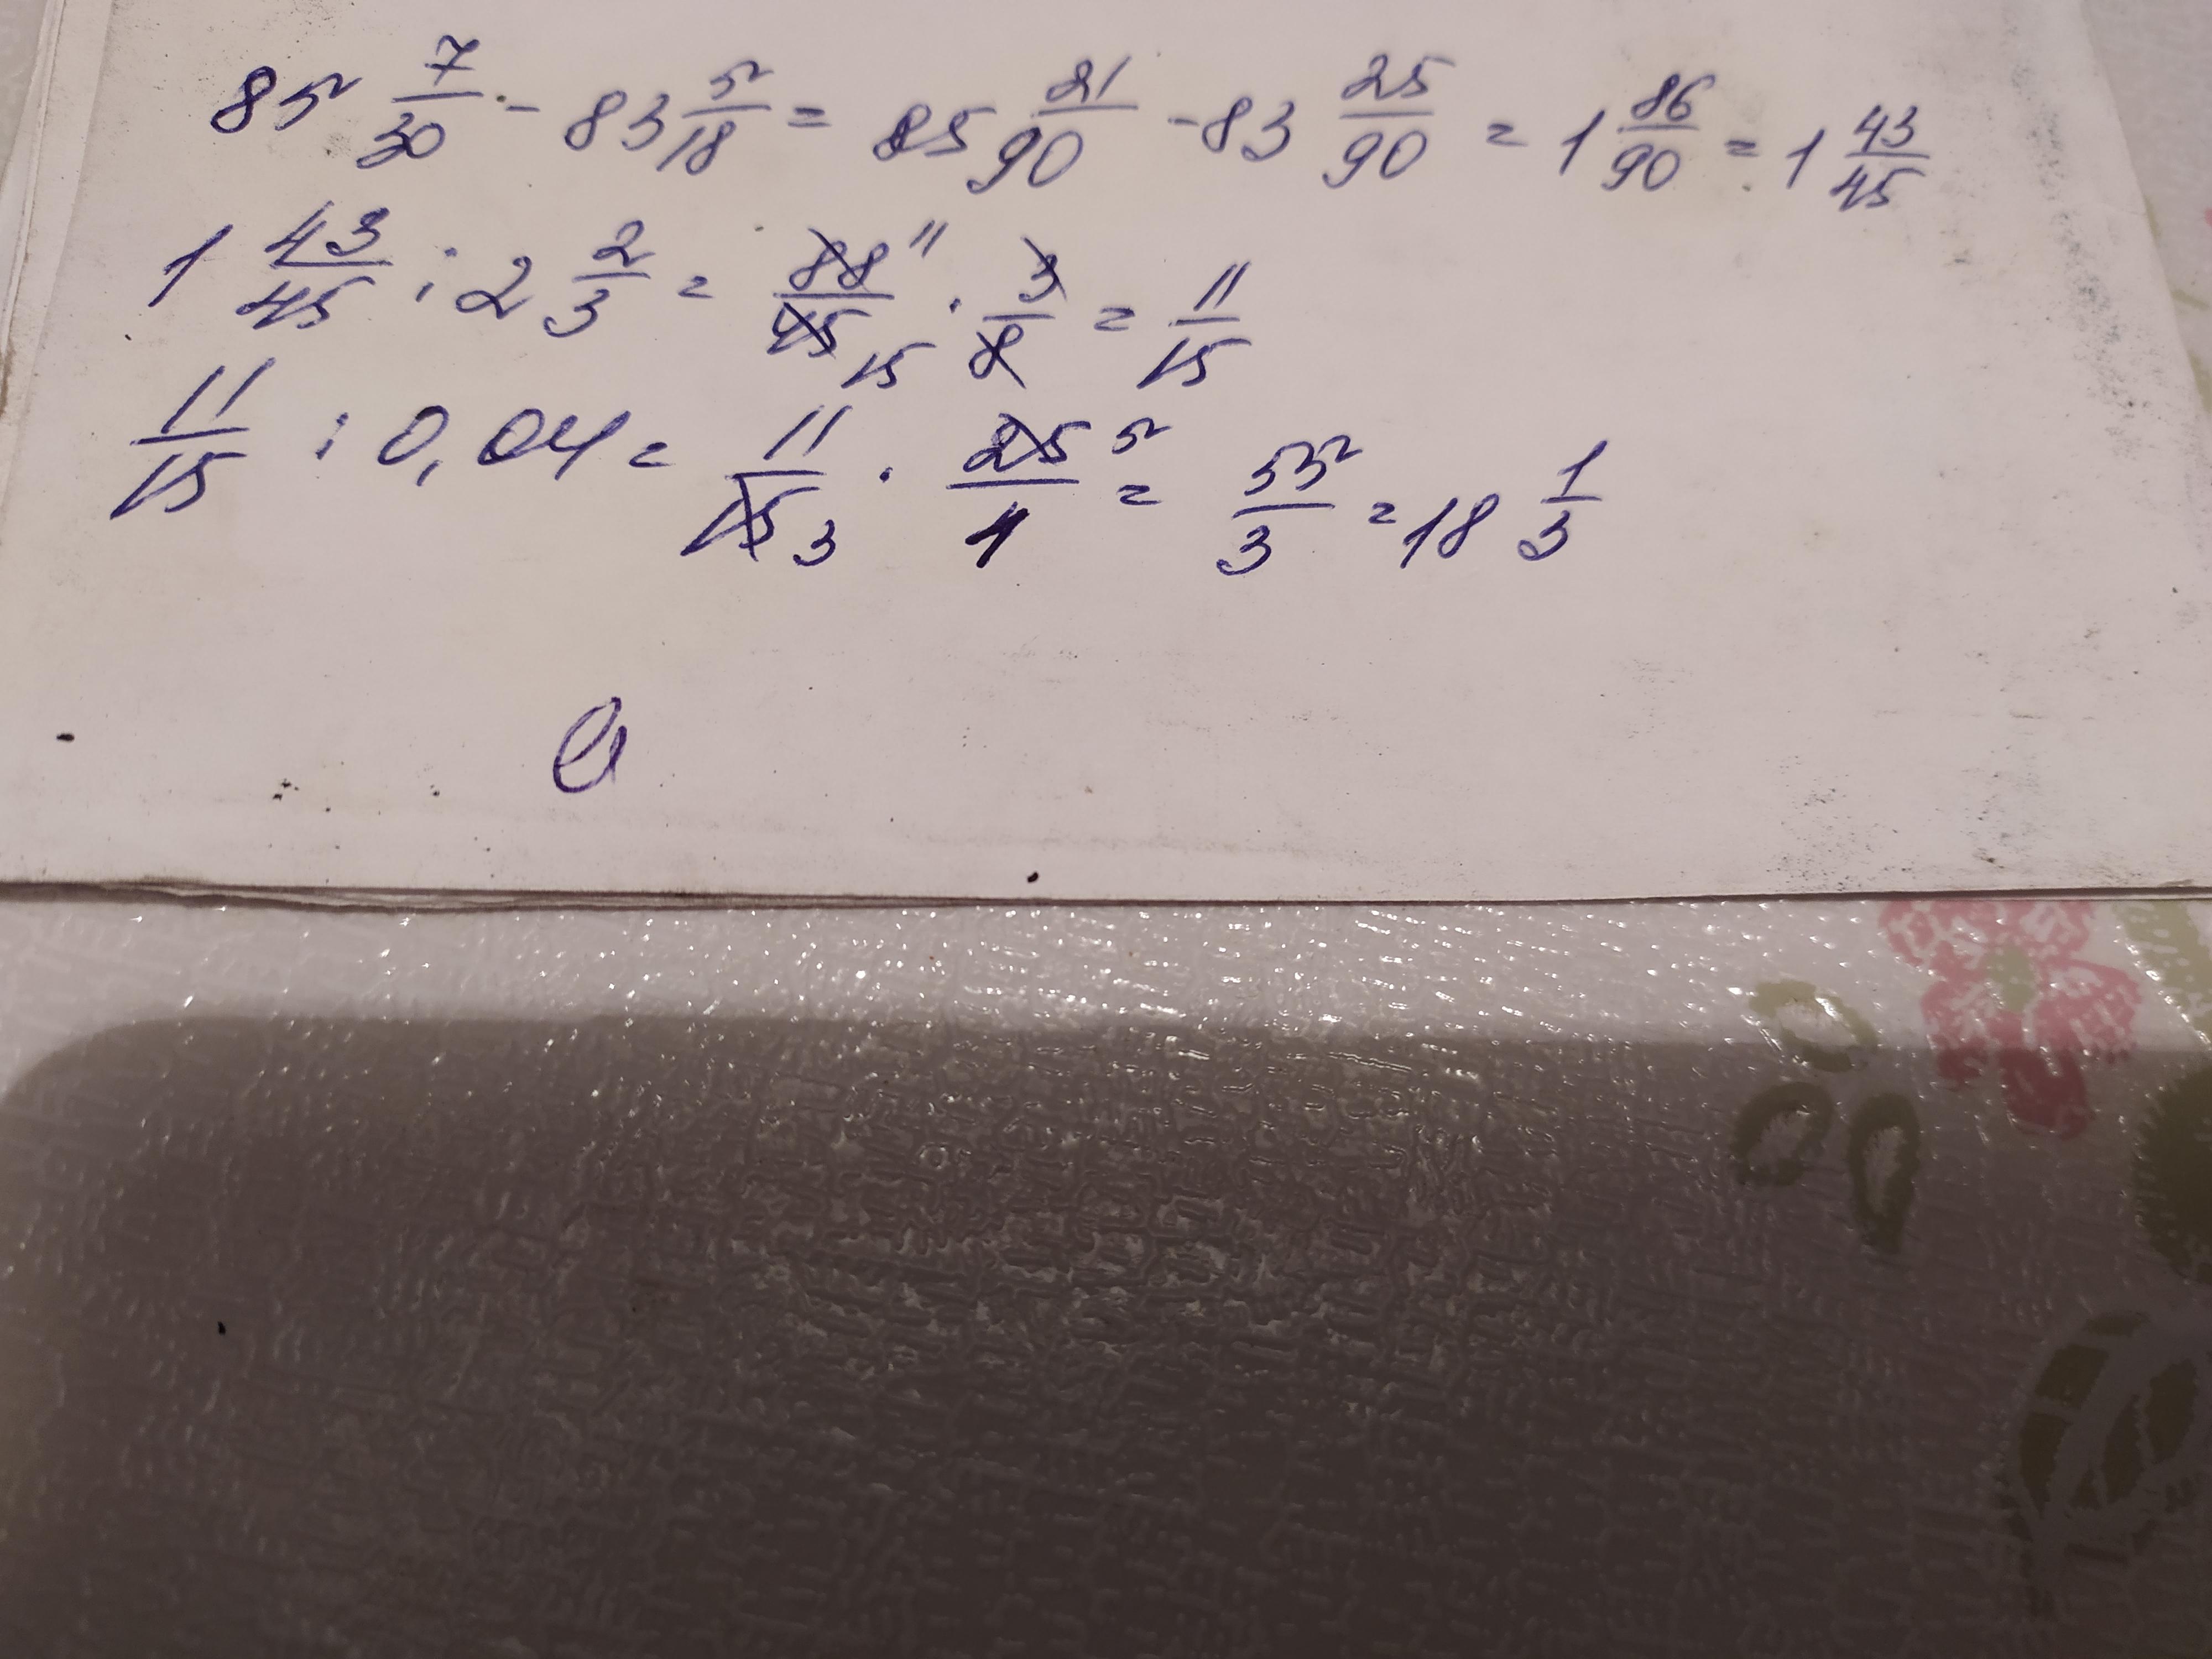 85 7/30 - 83 5/18 = 85 21/90 - 83 25/90 = 1 86/90 = 1 43/45
1 43/45 : 2 2/3 = 88 11/45 15 · 3/8 = 11/15
11/15 : 0,04 = 11/15 3 · 25 5/1 = 55/3 = 18 1/3